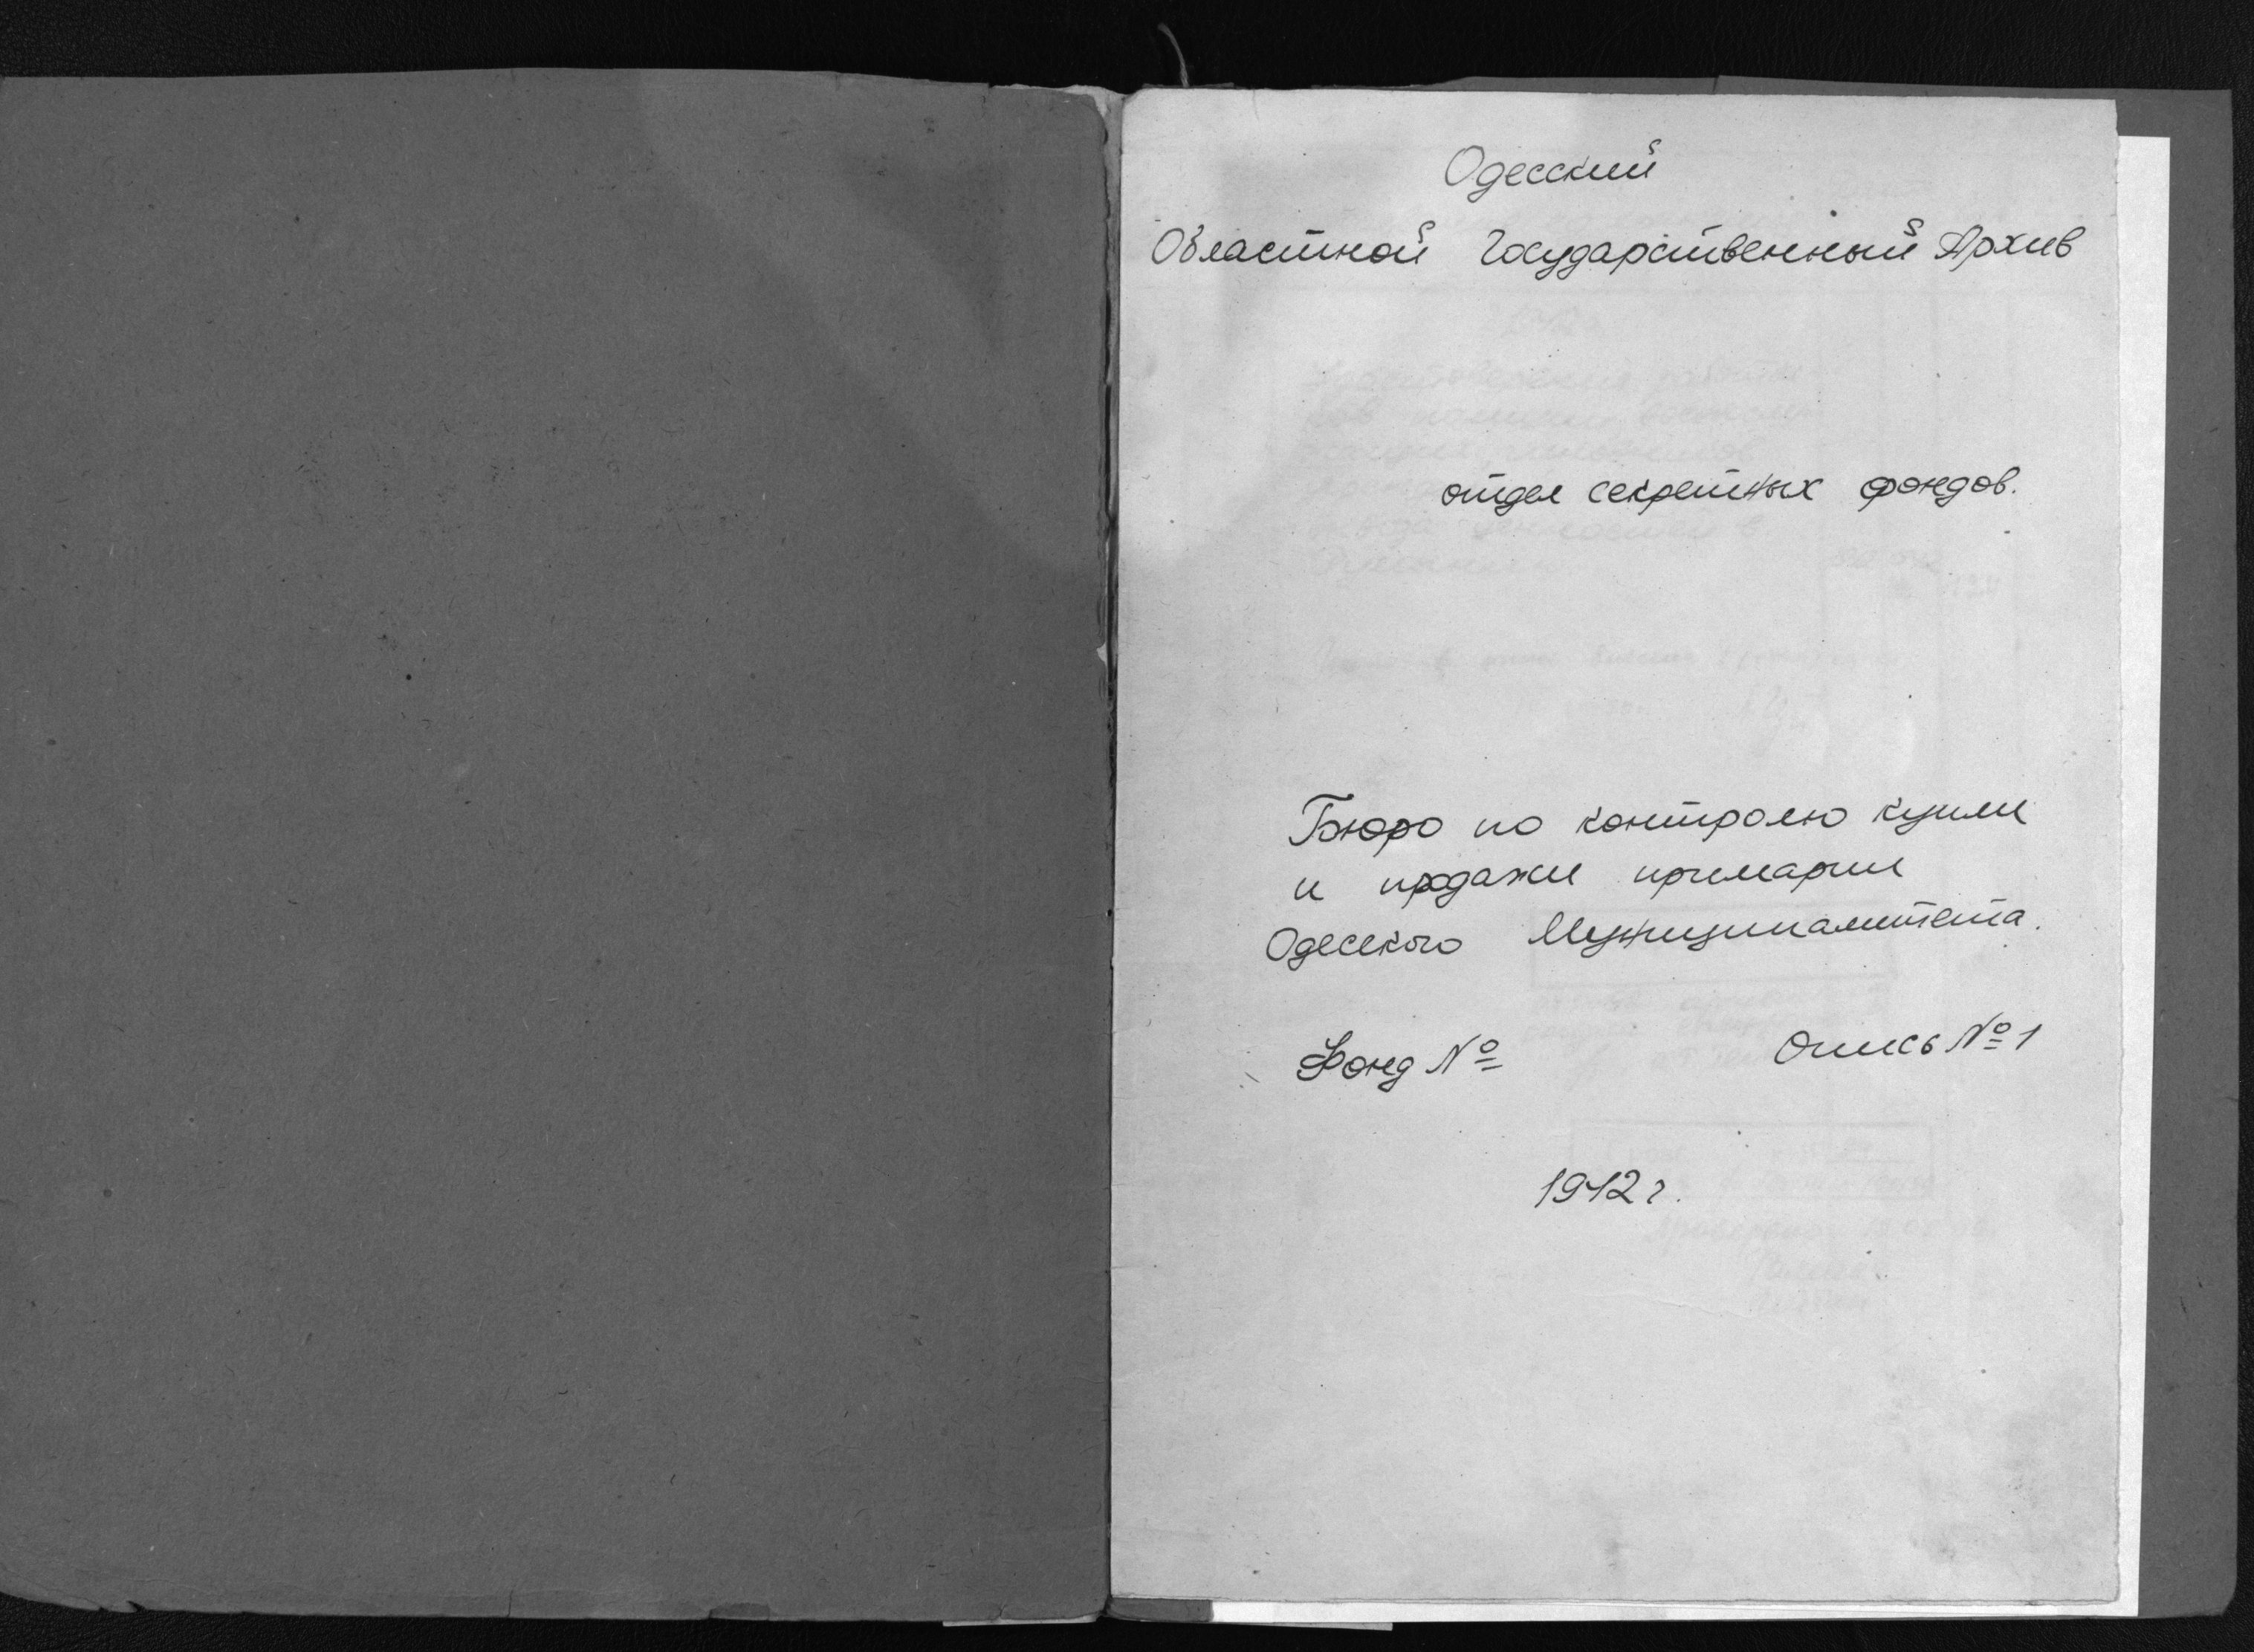 Одесский
Областной Государственный Архив
отдел секретных фондов.
Бюро по контролю купли
и продажи примарии
Одесского Муниципалитета.
Фонд № Опись № 1
1942 г.